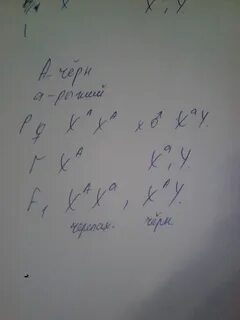 X, Y
А - чёрн
а - рыжий
P ♀ X^A X^A x ♂ X^a Y
Г X^A X^a, Y
F₁ X^A X^a, X^A Y
черепах. чёрн.